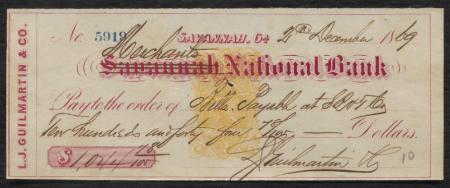 L.J. GUILMARTIN & CO.
No. 5919 SAVANNAH, GA 2th December 1869
Merchants
Savannah National Bank
Pay to the order of Bills Payable at
Ten hundred and forty four — Dollars.
$ 1,044
LJGuilmartin & Co
10